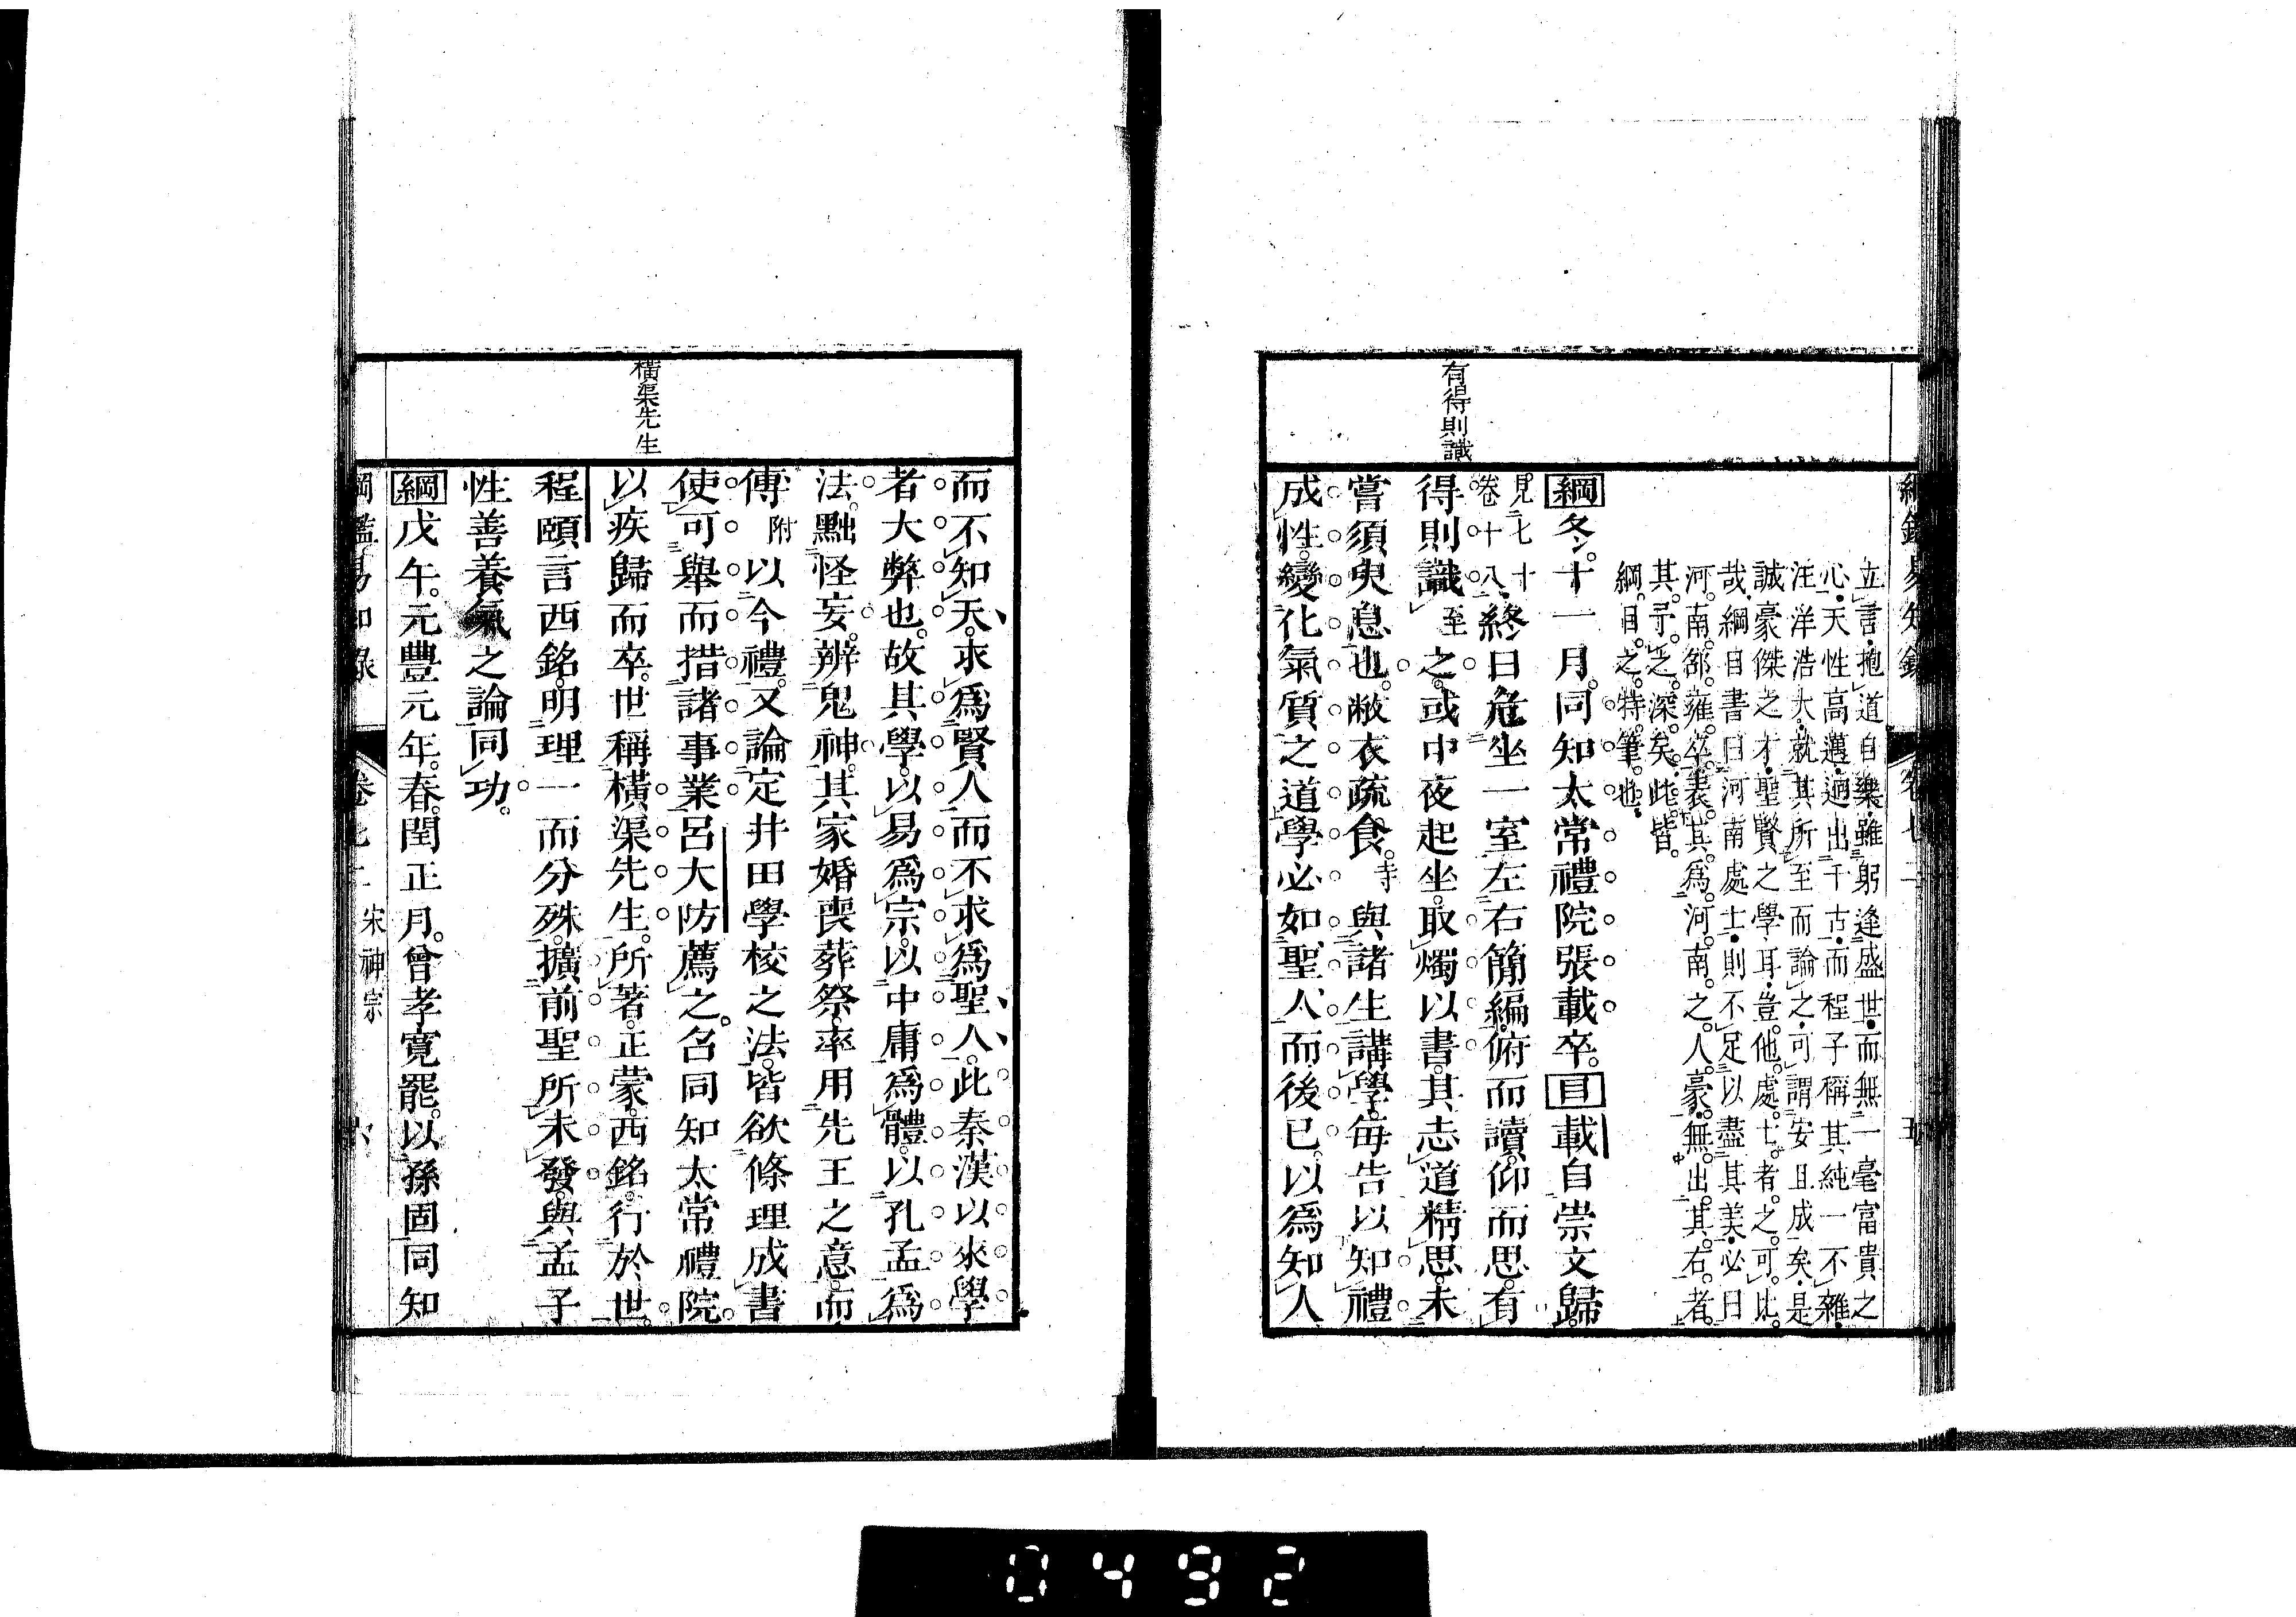 綱鑑易知錄 卷七十二 五
立言抱道自樂雖躬逢盛世而無一毫富貴之
心天性高邁逈出千古而程子稱其純一不雜
汪洋浩大就其所至而論之可謂安且成矣是
誠豪傑之才聖賢之學耳豈他處士者之可比
哉綱目書曰河南處士則不足以盡其美必曰
河南邵雍卒表其爲河南之人豪無出其右者
其予之深矣此皆
綱目之特筆也
綱冬十一月同知太常禮院張載卒目載自崇文歸
見七十
卷十八終日危坐一室左右簡編俯而讀仰而思有
有得則識
得則識至之或中夜起坐取燭以書其志道精思未
嘗須臾息也敝衣疏食寺與諸生講學每告以知禮
成性變化氣質之道學必如聖人而後已以爲知人
而不知天求爲賢人而不求爲聖人此秦漢以來學
者大弊也故其學以易爲宗以中庸爲體以孔孟爲
法黜怪妄辨鬼神其家婚喪葬祭率用先王之意而
傳附以今禮又論定井田學校之法皆欲條理成書
使可舉而措諸事業呂大防薦之召同知太常禮院
橫渠先生
以疾歸而卒世稱橫渠先生所著正蒙西銘行於世
程頤言西銘明理一而分殊擴前聖所未發與孟子
性善養氣之論同功
綱戊午元豐元年春閏正月曾孝寬罷以孫固同知
綱鑑易知錄 卷七十二 宋神宗 六
0492